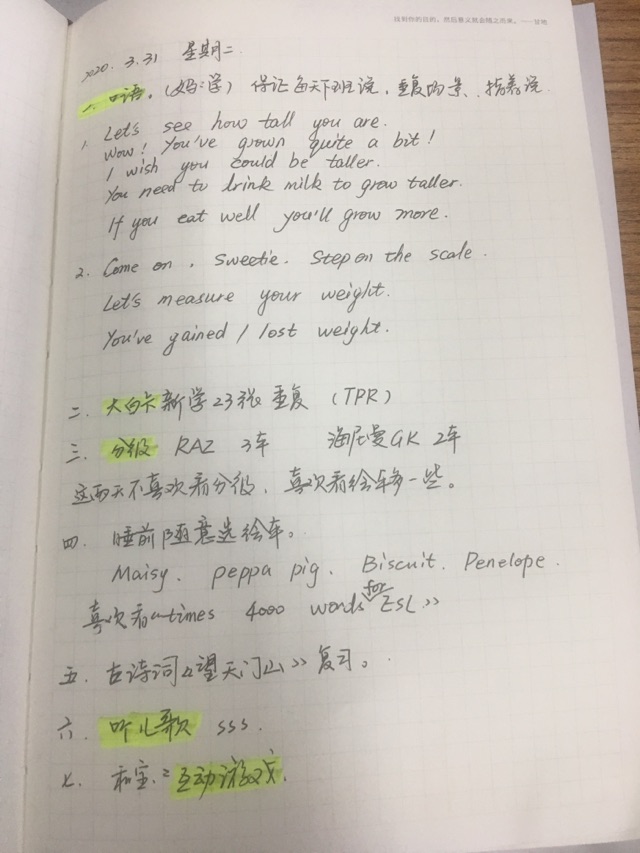 找到你的目的，然后意义就会随之而来。——甘地
2020.3.31 星期二
一. 口语。(妈妈学) 保证每天下班说，重复场景、指着说
1. Let's see how tall you are.
Wow! You've grown quite a bit!
I wish you could be taller.
You need to drink milk to grow taller.
If you eat well you'll grow more.
2. Come on, Sweetie. Step on the scale.
Let's measure your weight.
You've gained / lost weight.
二. 大白卡新学23张重复 (TPR)
三. 分级 RAZ 3本 海尼曼GK 2本
这两天不喜欢看分级，喜欢看绘本多一些。
四. 睡前随意选绘本。
Maisy. peppa pig. Biscuit. Penelope.
for
喜欢看《times 4000 words ESL》
五. 古诗词《望天门山》复习。
六. 听儿歌 sss.
七. 和宝宝互动游戏.